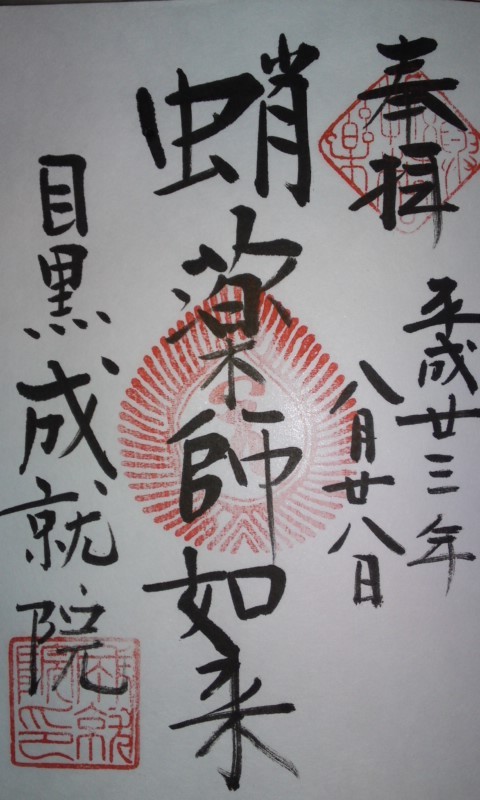 奉拝
平成廿三年
八月廿八日
蛸薬師如来
目黒成就院
成就院印